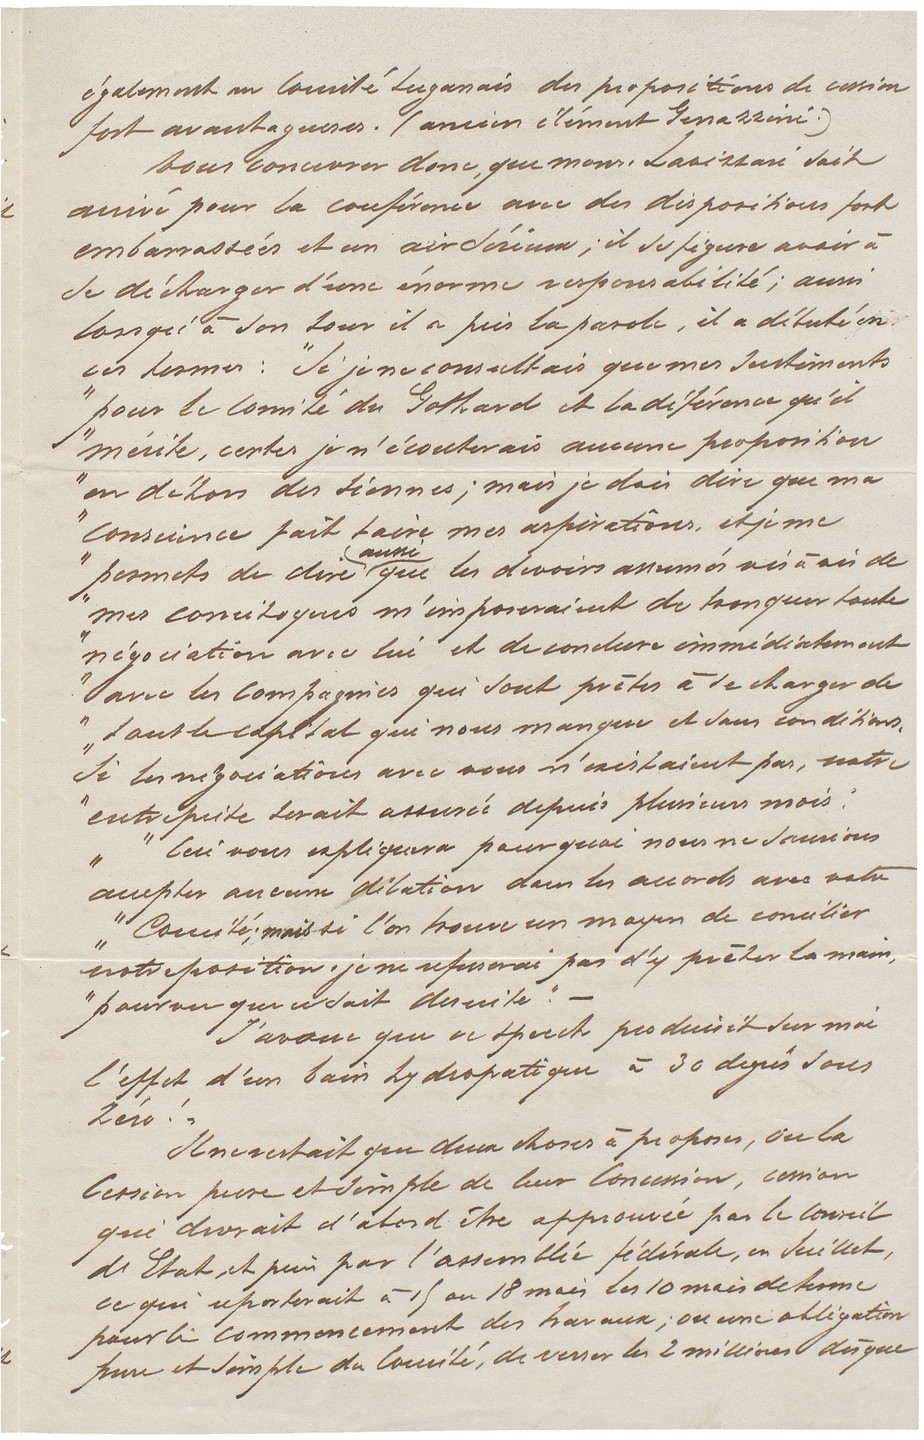 également au Comité Luganais des propositions de cession
fort avantageuses. (ancien élément Genazzini.)
Vous concevrez donc, que monr. Lavizzari soit
arrivé pour la conférence avec des dispositions fort
embarrassées et un air sérieux; il se figure avoir à
se décharger d'une énorme responsabilité; aussi
lorsqu'à son tour il a pris la parole, il a débuté en
ces termes: "Si je ne consultais que mes sentiments
"pour le Comité du Gothard et la déférence qu'il
"mérite, certes je n'écouterais aucune proposition
"en déhors des siennes; mais je dois dire que ma
"conscience fait taire mes aspirations, et je me
aussi
"permets de dire que les devoirs assumés vis à vis de
"mes concitoyens m'imposeraient de tronquer toute
"négociation avec lui et de conclure immédiatement
"avec les Compagnies qui sont prêtes à se charger de
"tout le capital qui nous manque et sans conditions.
Si les négociations avec vous n'existaient pas, notre
"entreprise serait assurée depuis plusieurs mois!
" "Ceci vous expliquera pourquoi nous ne saurions
accepter aucune dilation dans les accords avec votre
" "Comité; mais si l'on trouve un moyen de concilier
notre position, je ne refuserai pas d'y prêter la main,
"pourvu que ce soit de suite". —
J'avoue que ce speech produisit sur moi
l'effet d'un bain hydropatique à 30 degrés sous
Zéro!.
Il ne restait que deux choses à proposer, ou la
Cession pure et simple de leur Concession, cession
qui devrait d'abord être approuvée par le Conseil
d'Etat, et puis par l'assemblée fédérale, en Juillet,
ce qui reporterait à 15 ou 18 mois les 10 mois de terme
pour le commencement des travaux; ou une obligation
pure et simple du Comité, de verser les 2 millions dès que